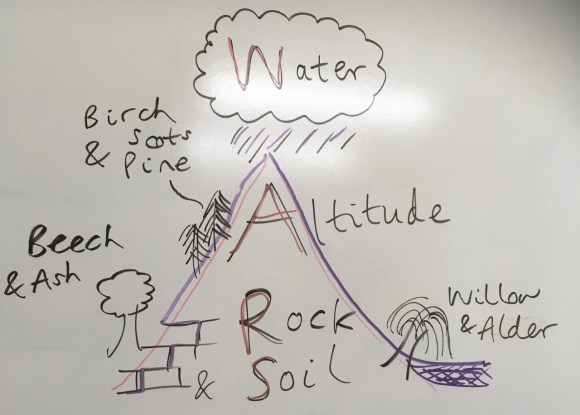 Water
Birch
& Scots
Pine
Altitude
Beech
& Ash
Willow
& Alder
Rock
& Soil